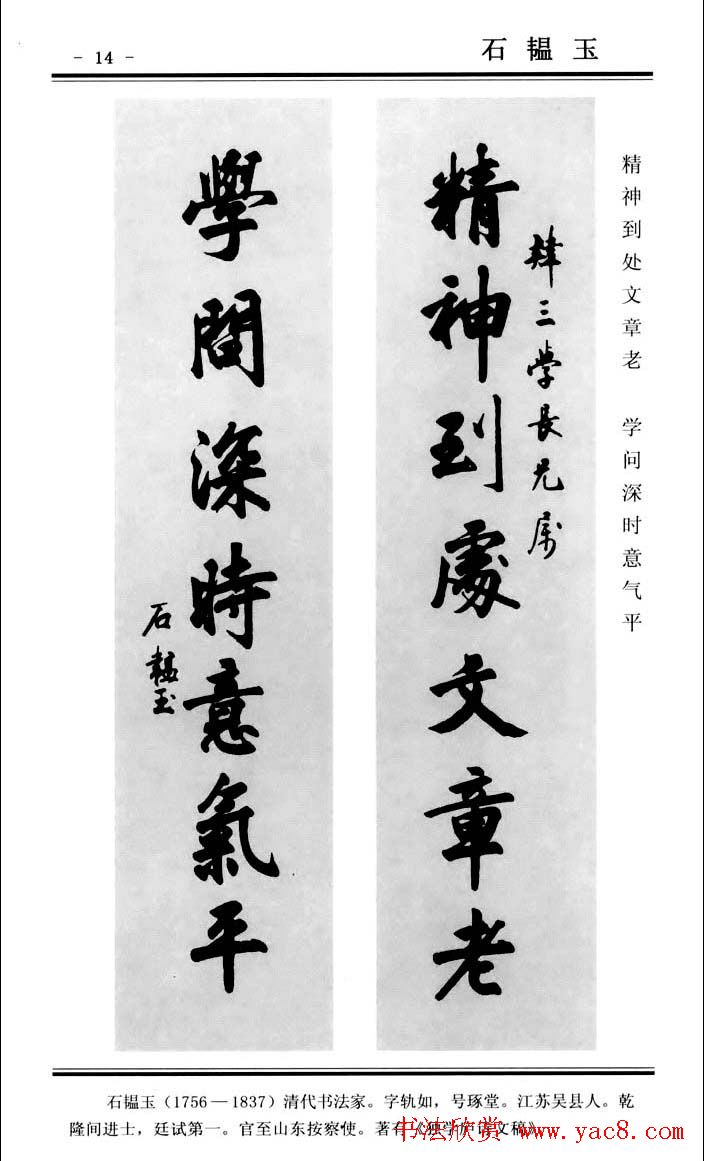 - 14 -
石韫玉
精神到處文章老
肄三学長兄属
學問深時意氣平
石韞玉
精神到处文章老 学问深时意气平
石韫玉（1756－1837）清代书法家。字轨如，号琢堂。江苏吴县人。乾
隆间进士，廷试第一。官至山东按察使。著有《独学庐诗文稿》。
书法欣赏 www.yac8.com